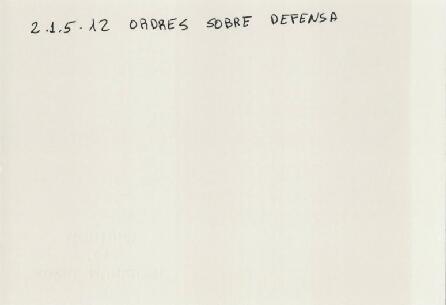 2.1.5.12 ORDRES SOBRE DEFENSA